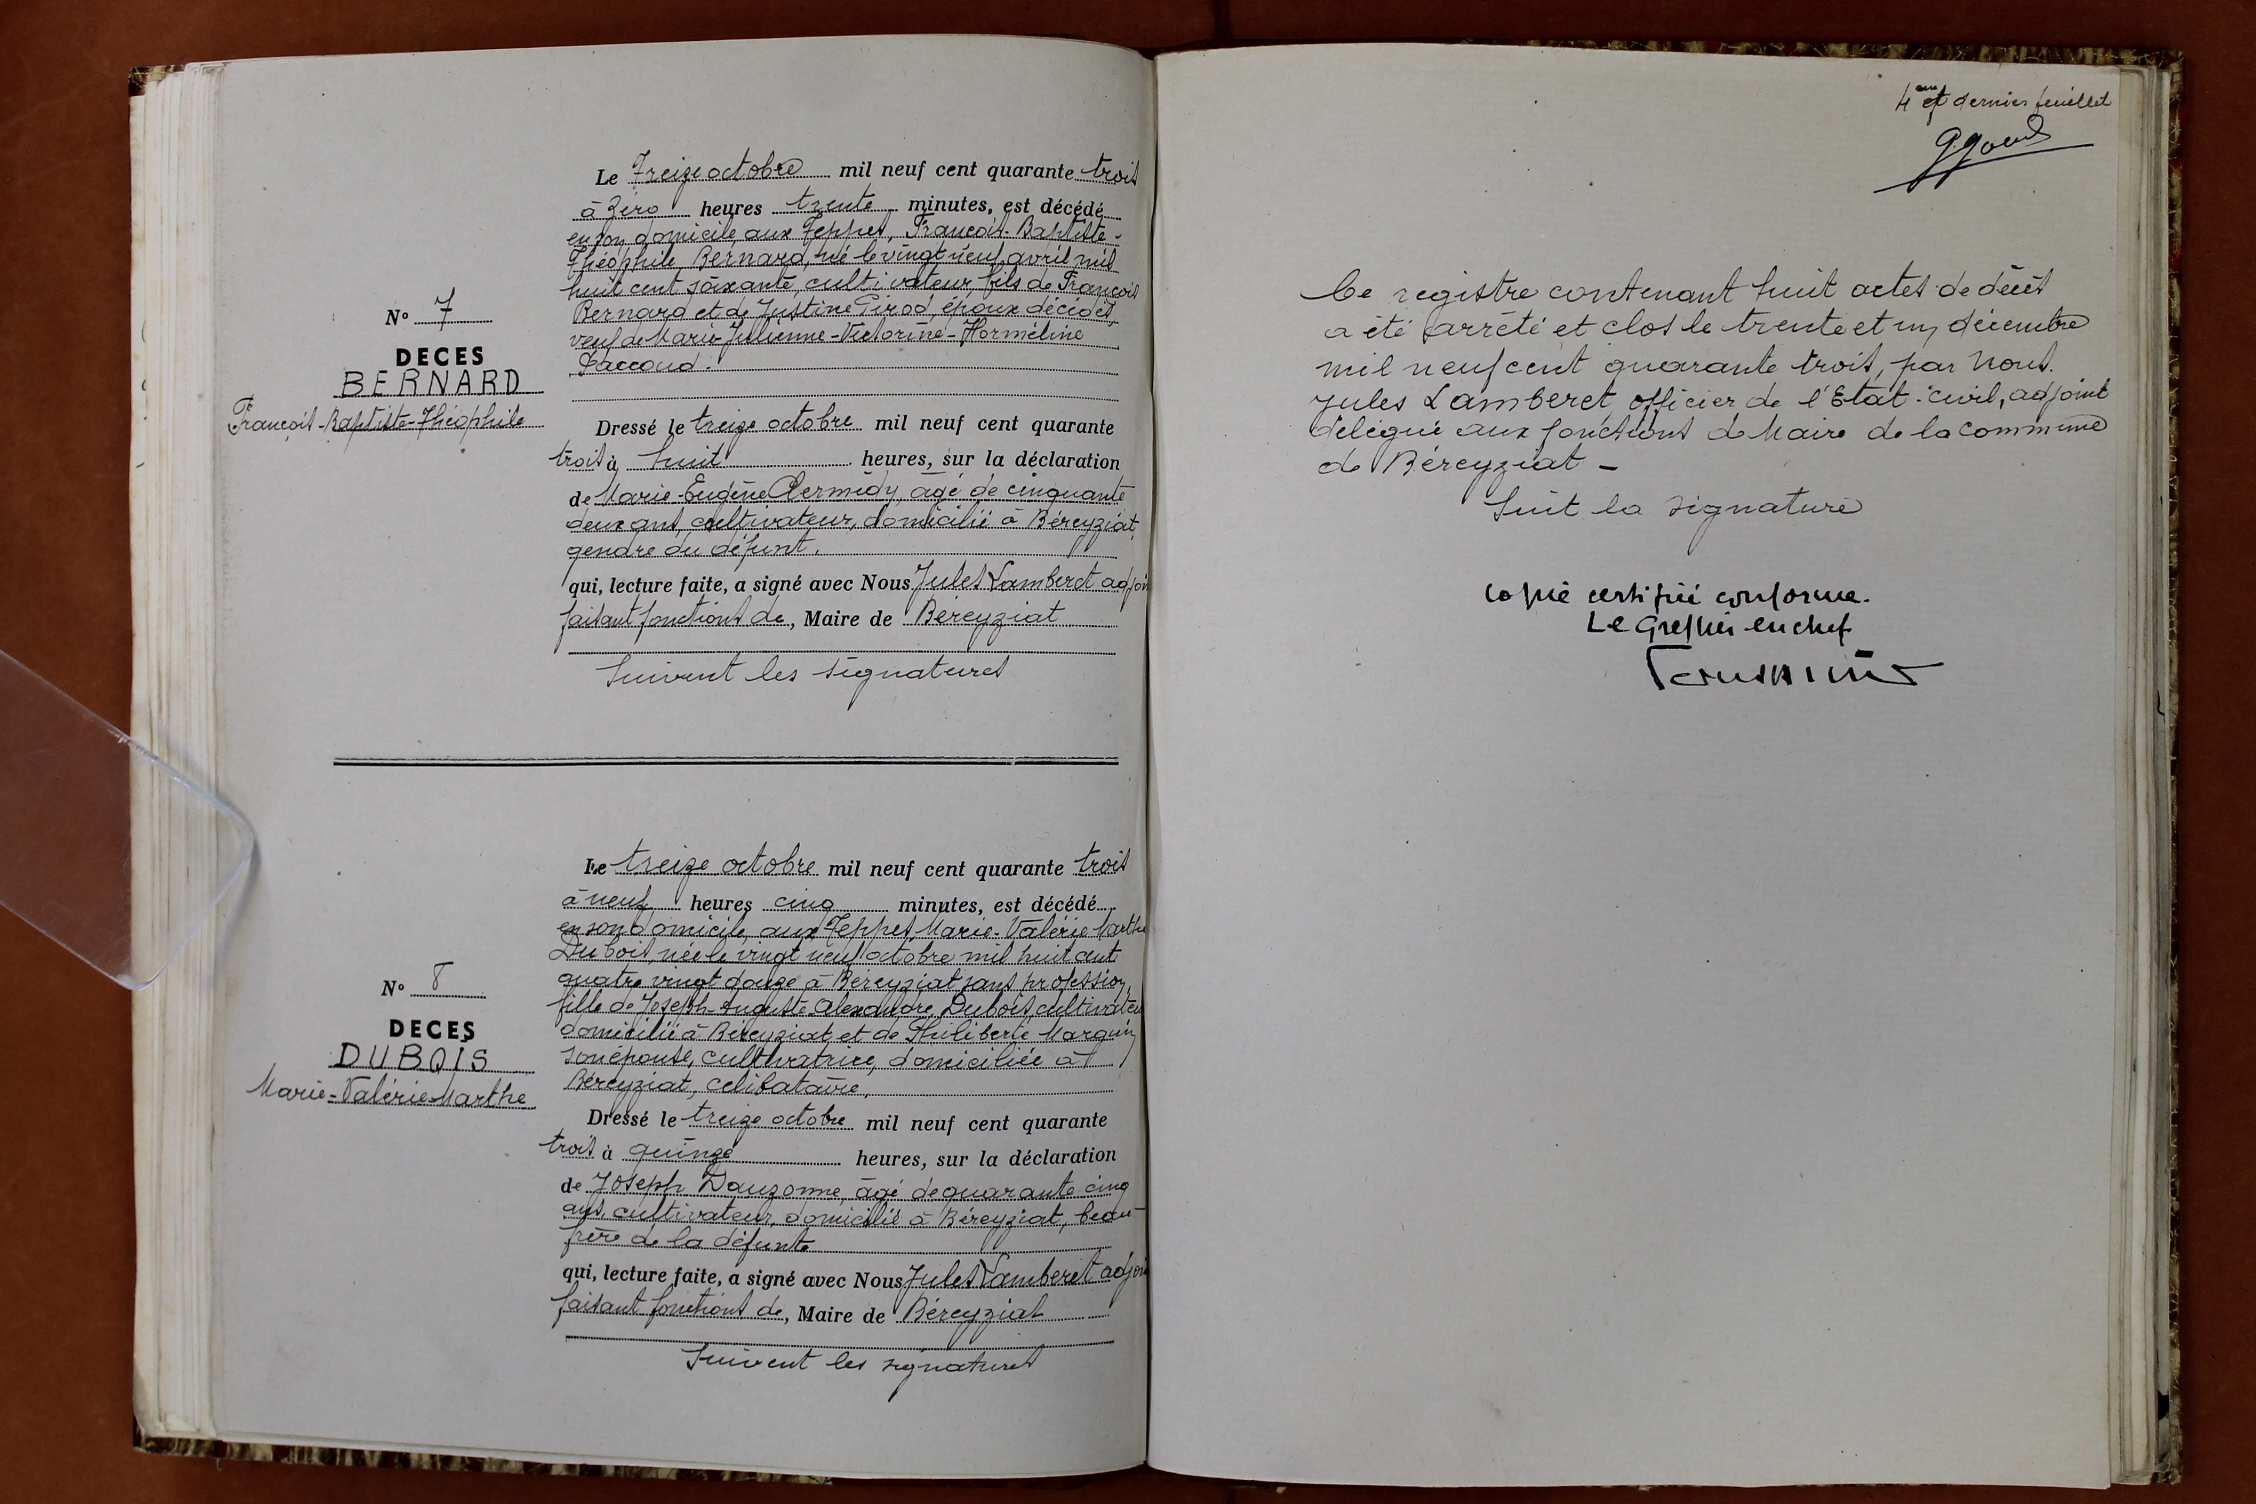 N° 7
DECES
BERNARD
François-Baptiste-Théophile
Le Treize octobre mil neuf cent quarante trois
à zéro heures trente minutes, est décédé
en son domicile, aux Teppes, François-Baptiste-
Théophile, Bernard, né le vingt neuf avril mil
huit cent soixante, cultivateur, fils de François
Bernard et de Justine Pirod, époux décédés,
veuf de Marie-Julienne-Victorine-Horméline
Paccoud.
Dressé le treize octobre mil neuf cent quarante
trois à huit heures, sur la déclaration
de Marie-Eugène Clermidy, âgé de cinquante
deux ans, cultivateur, domicilié à Béreyziat,
gendre du défunt.
qui, lecture faite, a signé avec Nous Jules Lamberet adjoin
faisant fonctions de, Maire de Béreyziat
Suivent les signatures
N° 8
DECES
DUBOIS
Marie-Valérie-Marthe
Le treize octobre mil neuf cent quarante trois
à neuf heures cinq minutes, est décédé
en son domicile, aux Teppes, Marie-Valérie-Marthe
Dubois, née le vingt neuf octobre mil huit cent
quatre vingt douze à Béreyziat, sans profession,
fille de Joseph-Auguste-Alexandre Dubois, cultivateu
domicilié à Béreyziat, et de Philiberte Marguin
son épouse, cultivatrice, domiciliée à
Béreyziat, célibataire,
Dressé le treize octobre mil neuf cent quarante
trois à quinze heures, sur la déclaration
de Joseph Dauzonne, âgé de quarante cinq
ans, cultivateur, domicilié à Béreyziat, beau-
frère de la défunte
qui, lecture faite, a signé avec Nous Jules Lamberet adjoi
faisant fonctions de, Maire de Béreyziat
Suivent les signatures
4eme et dernier feuillet
Ce registre contenant huit actes de décès
a été arrêté et clos le trente et un décembre
mil neuf cent quarante trois, par Nous.
Jules Lamberet, officier de l'Etat-civil, adjoint
délégué aux fonctions de Maire de la commune
de Béreyziat -
Suit la signature
Copie certifiée conforme.
Le Greffier en chef